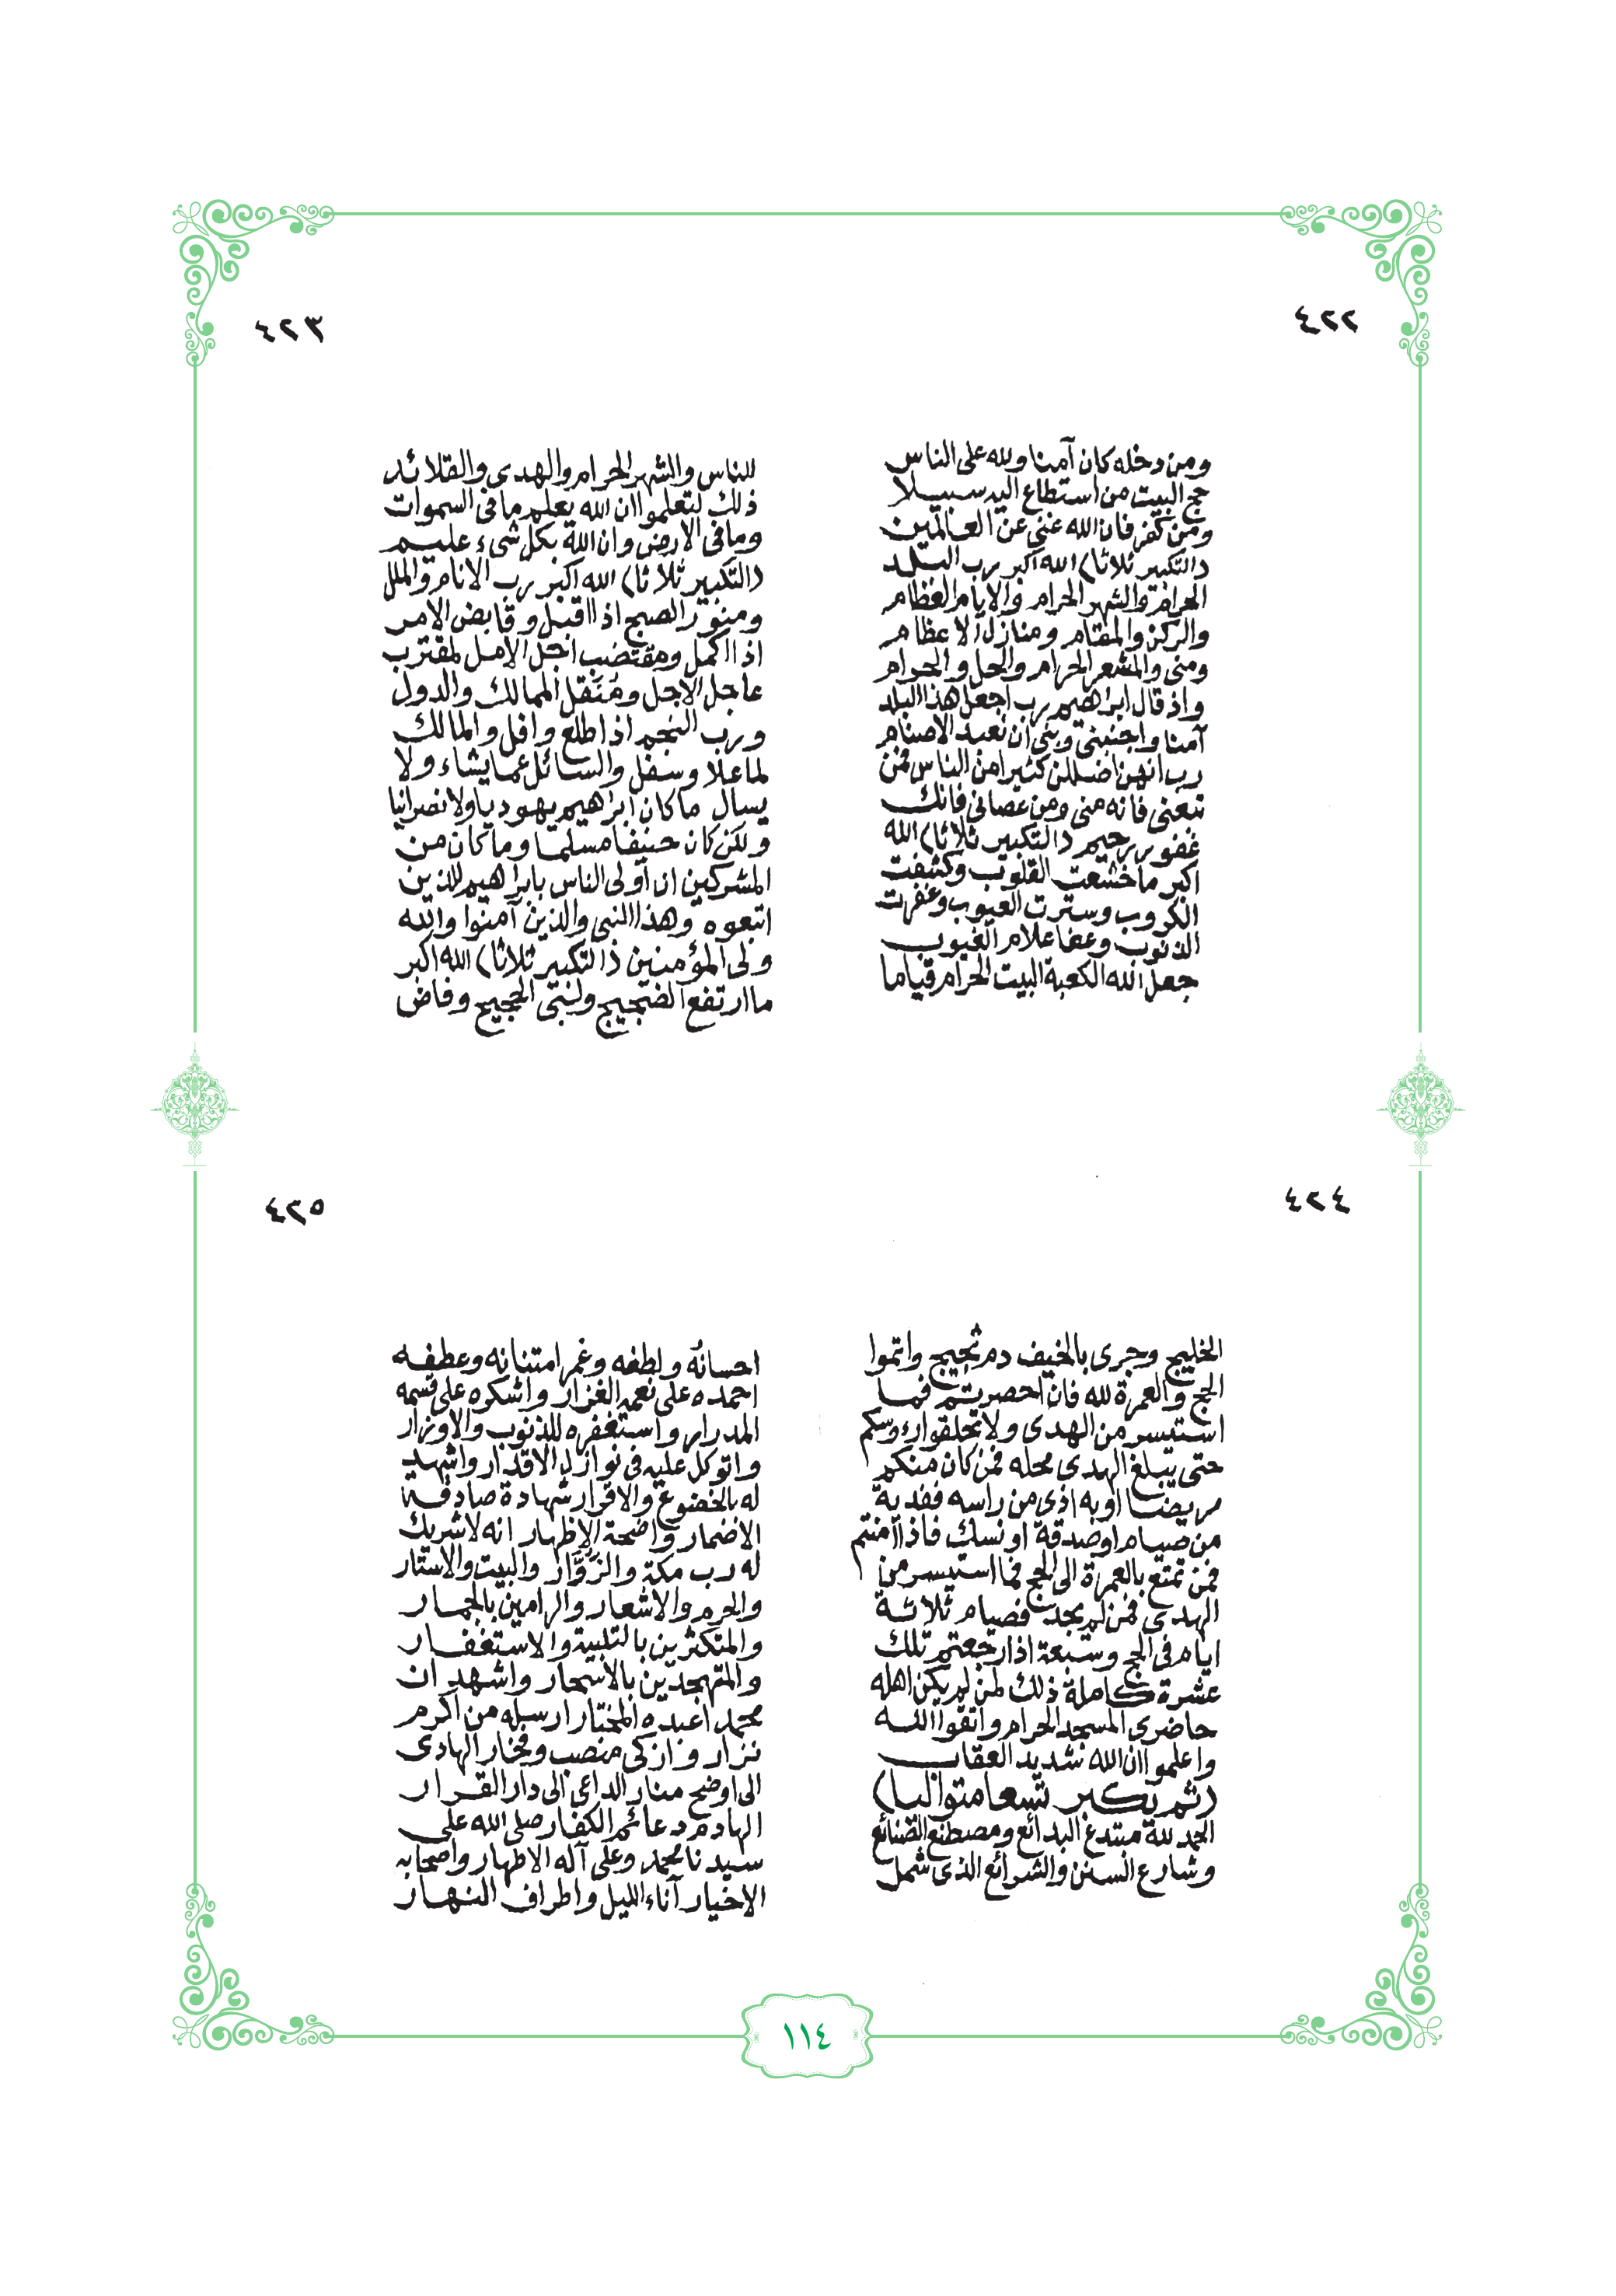 ٤٢٢
ومن دخله كان آمنا ولله على الناس
حج البيت من استطاع اليه سبيلا
ومن كفر فان الله غني عن العالمين
(التكبير ثلاثا) الله اكبر رب البلد
الحرام والشهر الحرام والايام العظام
والركن والمقام ومنازل الاعظام
ومنى والمشعر الحرام والحل والحرام
واذ قال ابراهيم رب اجعل هذا البلد
آمنا واجنبني وبني ان نعبد الاصنام
رب انهن اضللن كثيرا من الناس فمن
تبعنى فانه منى ومن عصانى فانك
غفور رحيم (التكبير ثلاثا) الله
اكبر ما خشعت القلوب وكشفت
الكروب وسترت العيوب وغفرت
الذنوب وعفا علام الغيوب
جعل الله الكعبة البيت الحرام قياما
٤٢٣
للناس والشهر الحرام والهدى والقلائد
ذلك لتعلموا ان الله يعلم ما فى السموات
وما فى الارض وان الله بكل شىء عليم
(التكبير ثلاثا) الله اكبر رب الانام والملل
ومنور الصبح اذا اقبل وقابض الامر
اذا اكمل ومقتضب اجل الامل لمقترب
عاجل الاجل ومنقل الممالك والدول
ورب النجم اذا طلع وافل والمالك
لما علا وسفل والسائل عما يشاء ولا
يسال ما كان ابراهيم يهوديا ولا نصرانيا
ولكن كان حنيفا مسلما وما كان من
المشركين ان أولى الناس بابراهيم للذين
اتبعوه وهذا النبى والذين آمنوا والله
ولى المؤمنين (التكبير ثلاثا) الله اكبر
ما ارتفع الضجيج ولبى الحجيج وفاض
٤٢٤
الخليج وجرى بالخيف دم ثجيج واتموا
الحج والعمرة لله فان احصرتم فما
استيسر من الهدى ولا تحلقوا رءوسكم
حتى يبلغ الهدى محله فمن كان منكم
مريضا او به اذى من راسه ففدية
من صيام او صدقة او نسك فاذا امنتم
فمن تمتع بالعمرة الى الحج فما استيسر من
الهدى فمن لم يجد فصيام ثلاثة
ايام فى الحج وسبعة اذا رجعتم تلك
عشرة كاملة ذلك لمن لم يكن اهله
حاضرى المسجد الحرام واتقوا الله
واعلموا ان الله شديد العقاب
(ثم يكبر تسعا متواليا)
الحمد لله مبتدع البدائع ومصطنع الصنائع
وشارع السنن والشرائع الذى شمل
٤٢٥
احسانُه ولطفه وغمر امتنانه وعطفه
احمده على نعمه الغزار واشكره على قسمه
المدرار واستغفره للذنوب والاوزار
واتوكل عليه فى نوازل الاقدار واشهد
له بالخضوع والاقرار شهادة صادقة
الاضمار واضحة الاظهار انه لا شريك
له رب مكة والزُّوَّار والبيت والاستار
والحرم والاشعار والرامين بالجمار
والمتكثرين بالتلبية والاستغفار
والمتهجدين بالاسحار واشهد ان
محمدا عبده المختار ارسله من اكرم
نزار وازكى منصب وفخار الهادى
الى اوضح منار الداعى الى دار القرار
الهادم دعائم الكفار صلى الله على
سيدنا محمد وعلى آله الاطهار واصحابه
الاخيار آناء الليل واطراف النهار
١١٤